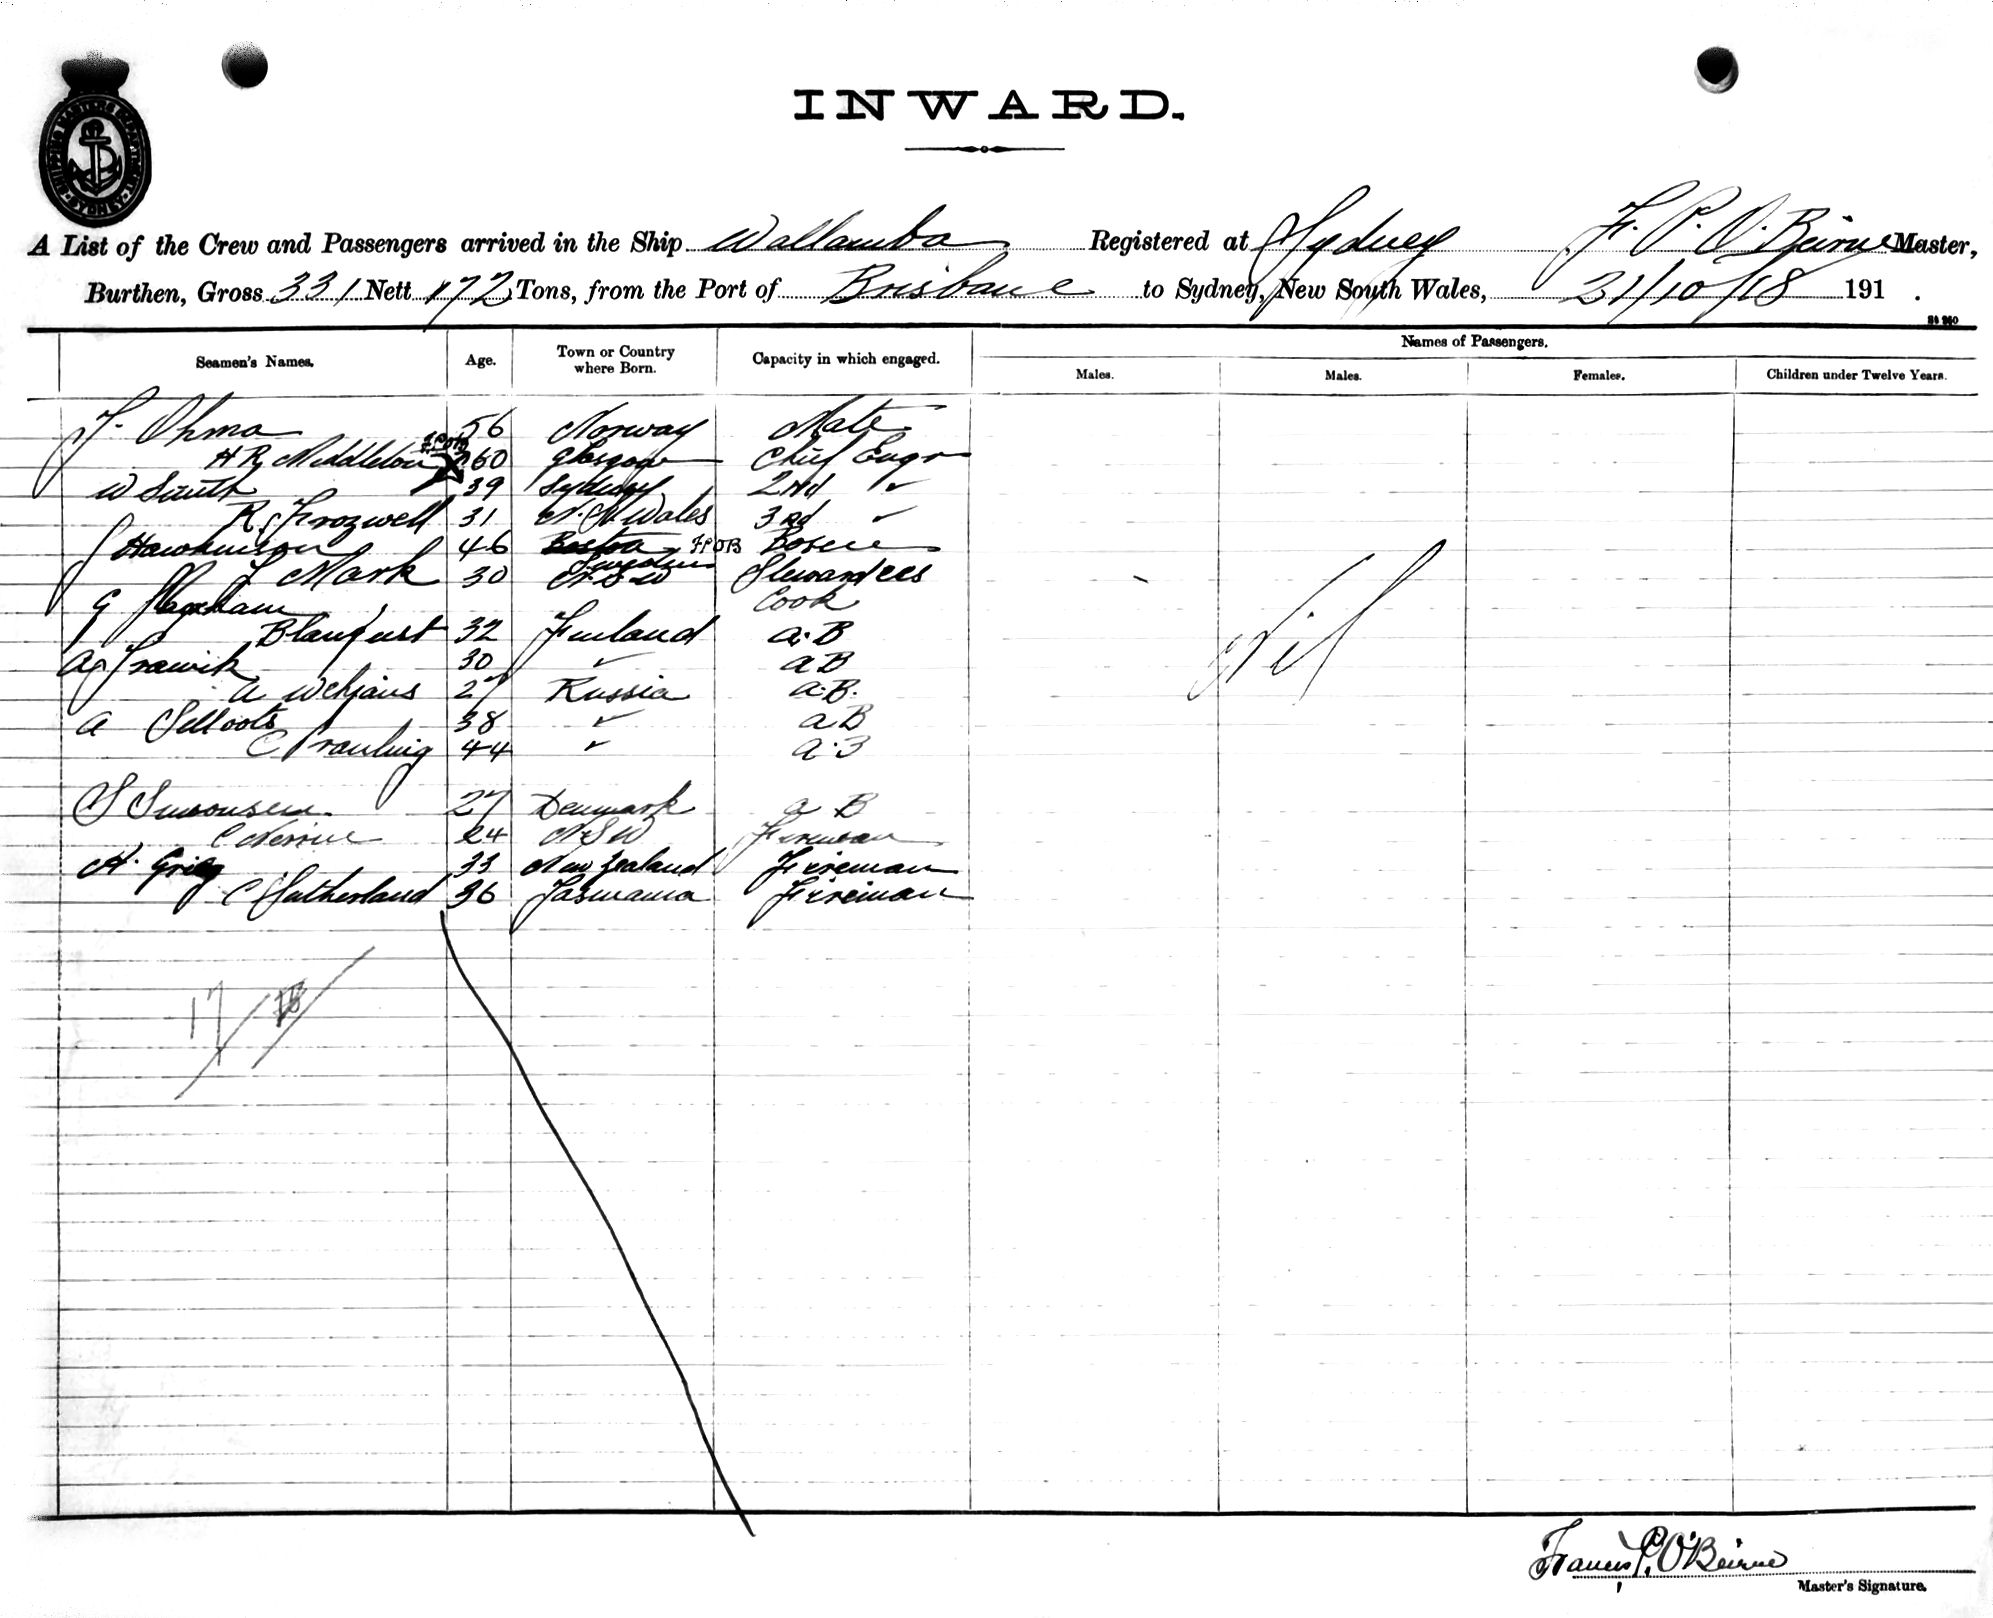 INWARD.
SHIPPING MASTERS DEPARTMENT SYDNEY
A List of the Crew and Passengers arrived in the Ship Wallamba Registered at Sydney F. P. O'Beirne Master,
Burthen, Gross 331 Nett 172 Tons, from the Port of Brisbane to Sydney, New South Wales, 21/10/18 191 .
Seamen's Names. Age. Town or Country where Born. Capacity in which engaged. Names of Passengers.
Males. Males. Females. Children under Twelve Years.
F. Ohma 56 Norway Mate
H R Middleton FPOB 60 Glasgow Chief Engr
W Smith 39 Sydney 2nd "
R Frozwell 31 N. S. Wales 3rd "
J Hawkinson 46 Boston FPOB Bosun
Sweden
L Mark 30 N.S.W Stewardess
G Cook
Blanquist 32 Finland A.B
30 " A B
A 27 Russia A.B.
A Selloots 38 " A B
C 44 " A.B
S Simonsen. 27 Denmark A B
C 24 N S W Fireman
H. Grieg 33 New Zealand Fireman
C Sutherland 36 Tasmania Fireman
Nil
17
Francis P. O'Beirne
Master's Signature.